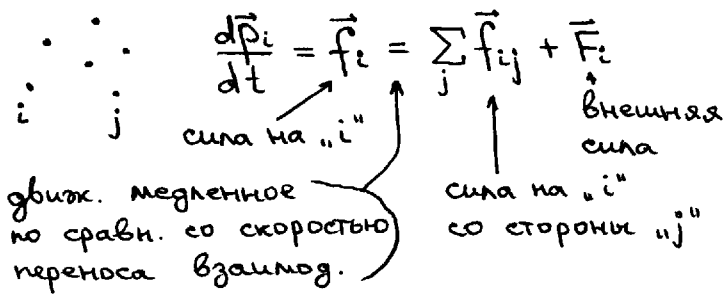 dp⃗ᵢ/dt = f⃗ᵢ = ∑ⱼ f⃗ᵢⱼ + F⃗ᵢ
i
j
сила на „i“
внешняя
сила
движ. медленное
по сравн. со скоростью
переноса взаимод.
сила на „i“
со стороны „j“